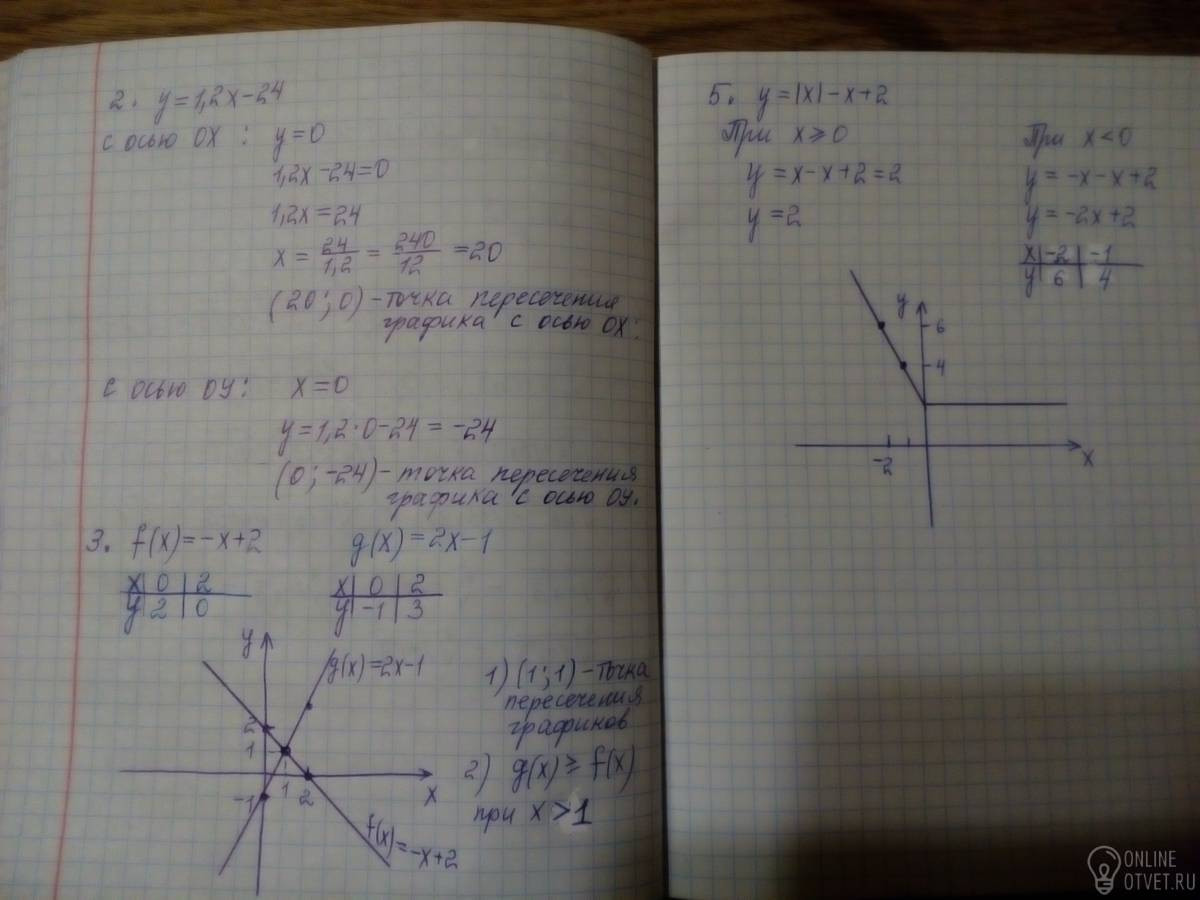 2. y=1,2x-24
с осью OX : y=0
1,2x-24=0
1,2x=24
x = 24/1,2 = 240/12 =20
(20; 0) - точка пересечения
графика с осью OX:
с осью OY: x=0
y=1,2·0-24 = -24
(0; -24) - точка пересечения
графика с осью OY.
3. f(x)=-x+2 g(x)=2x-1
x | 0 | 2
y | 2 | 0
x | 0 | 2
y | -1 | 3
y
g(x)=2x-1
2
1
-1
1 2
x
f(x)=-x+2
1) (1; 1) - точка
пересечения
графинов
2) g(x) ≥ f(x)
при x >1
5. y=|x|-x+2
При x≥0
y=x-x+2=2
y=2
При x<0
y=-x-x+2
y=-2x+2
x | -2 | -1
y | 6 | 4
y
6
4
-2
x
ONLINE
OTVET.RU